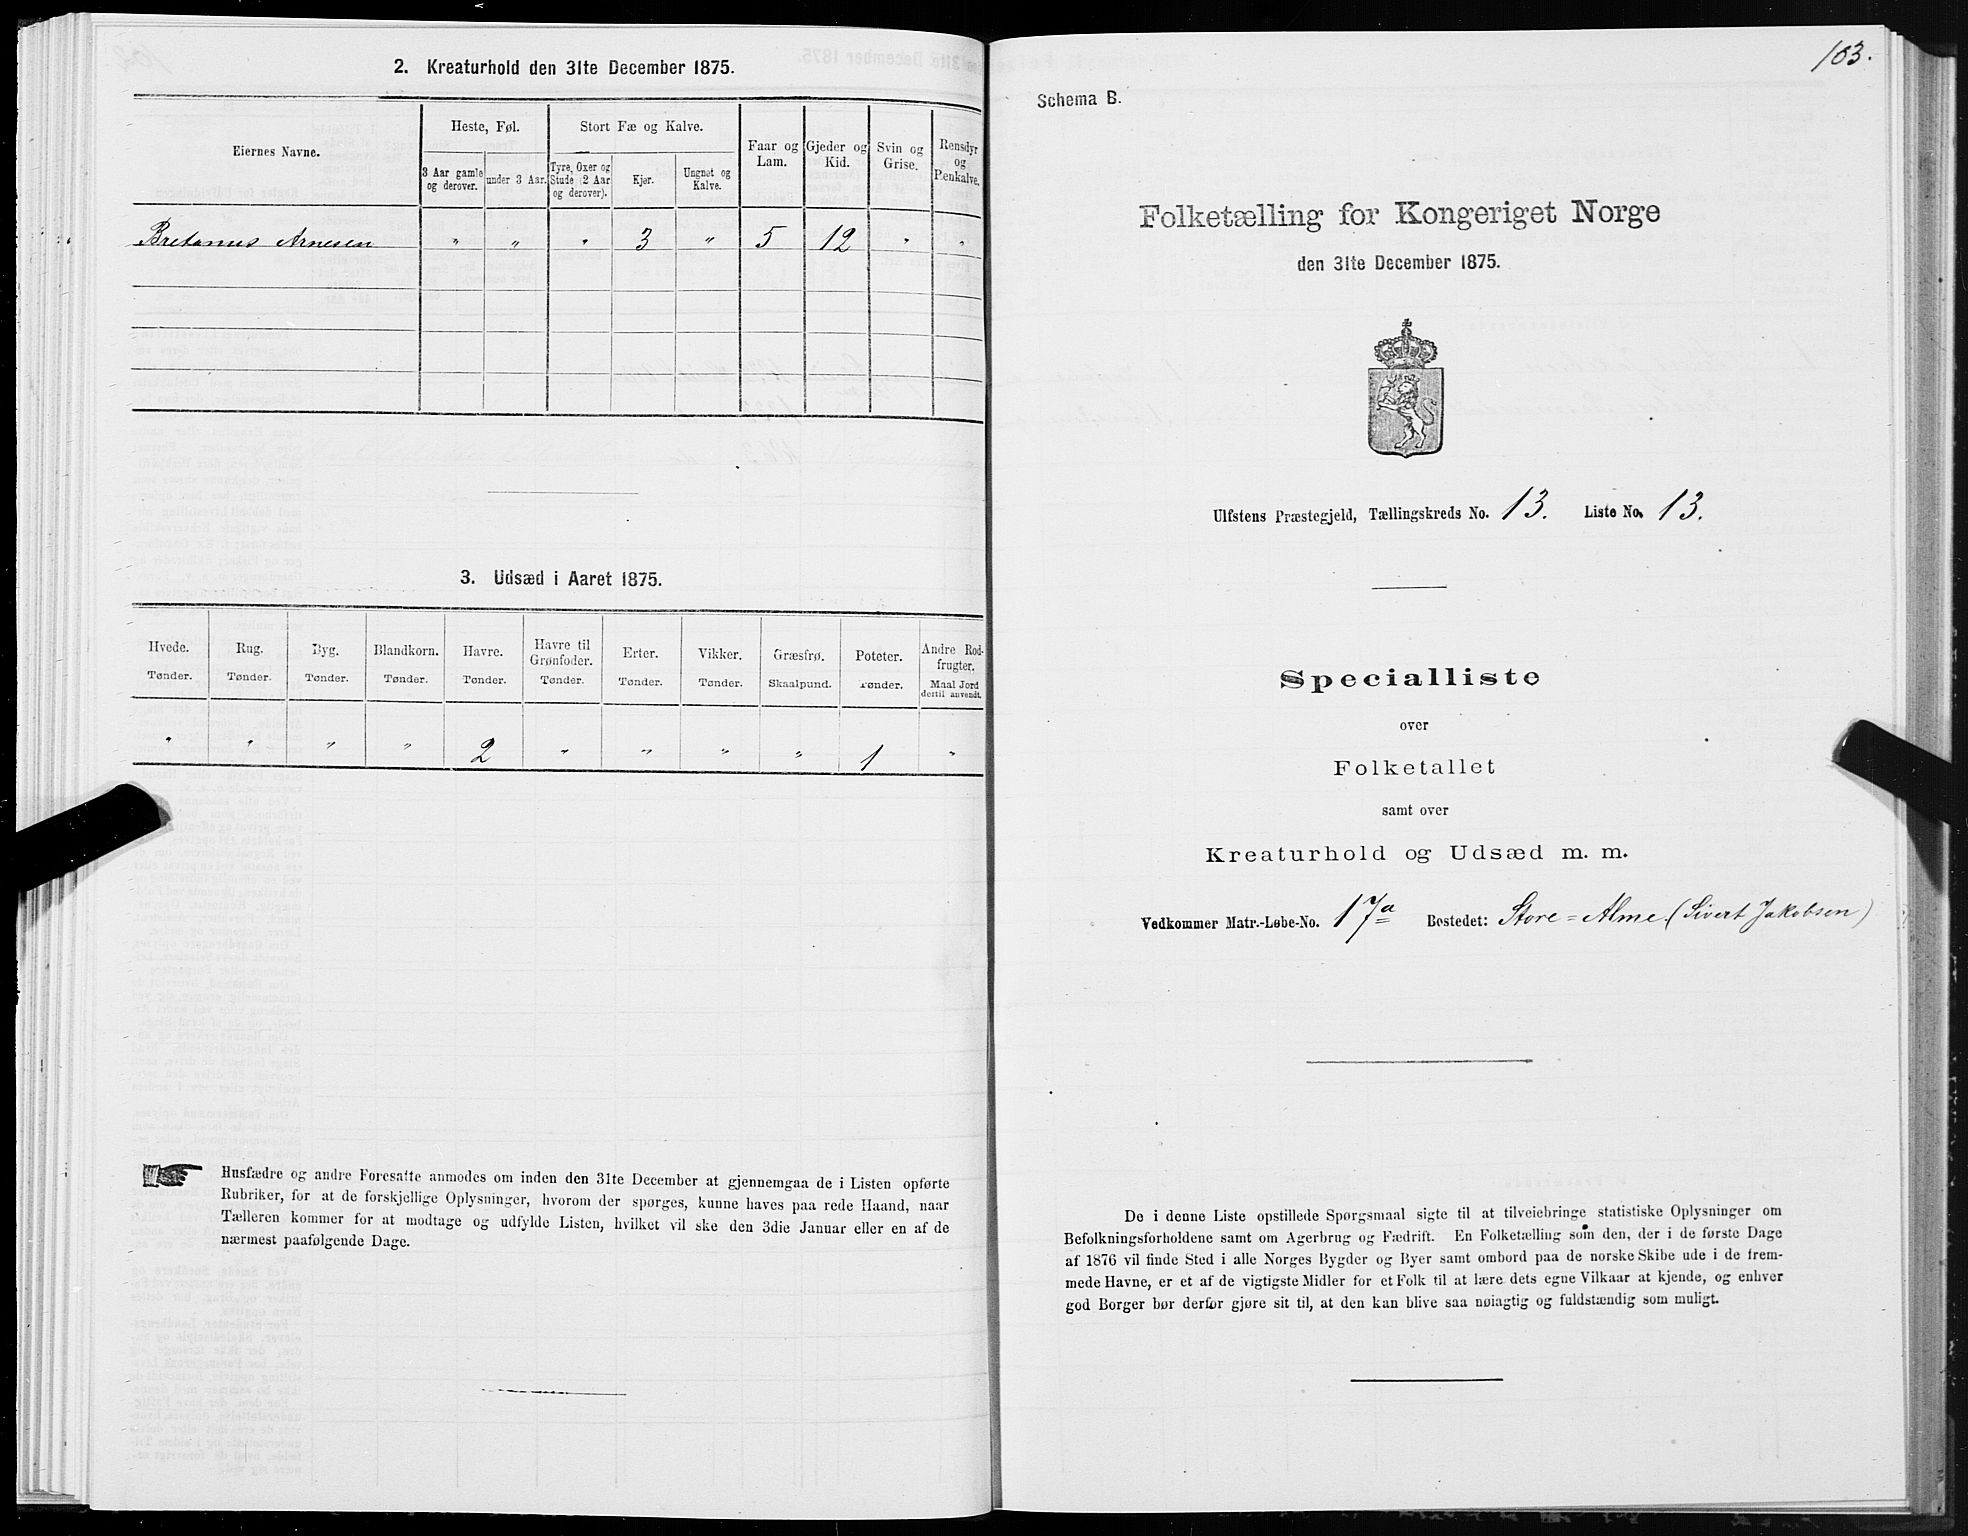 2. Kreaturhold den 31te December 1875.
Eiernes Navne.
Heste, Føl.
Stort Fæ og Kalve.
Faar og Lam.
Gjeder og Kid.
Svin og Grise.
Rensdyr og Renkalve.
3 Aar gamle og derover.
under 3 Aar.
Tyre, Oxer og Stude (2 Aar og derover).
Kjør.
Ungnet og Kalve.
Bretanus Arnesen " " " 3 " 5 12 " "
3. Udsæd i Aaret 1875.
Hvede. Rug. Byg. Blandkorn. Havre. Havre til Grønfoder. Erter. Vikker. Græsfrø. Poteter. Andre Rodfrugter.
Tønder. Tønder. Tønder. Tønder. Tønder. Tønder. Tønder. Tønder. Skaalpund. Tønder. Maal Jord dertil anvendt.
" " " " 2 " " " " 1 "
Husfædre og andre Foresatte anmodes om inden den 31te December at gjennemgaa de i Listen opførte
Rubriker, for at de forskjellige Oplysninger, hvorom der spørges, kunne haves paa rede Haand, naar
Tælleren kommer for at modtage og udfylde Listen, hvilket vil ske den 3die Januar eller en af de
nærmest paafølgende Dage.
103.
Schema B.
Folketælling for Kongeriget Norge
den 31te December 1875.
Ulfstens Præstegjeld, Tællingskreds No. 13. Liste No. 13.
Specialliste
over
Folketallet
samt over
Kreaturhold og Udsæd m. m.
Vedkommer Matr.-Løbe-No. 17a Bostedet: Store=Alme. (Sivert Jakobsen)
De i denne Liste opstillede Spørgsmaal sigte til at tilveiebringe statistiske Oplysninger om
Befolkningsforholdene samt om Agerbrug og Fædrift. En Folketælling som den, der i de første Dage
af 1876 vil finde Sted i alle Norges Bygder og Byer samt ombord paa de norske Skibe ude i de frem-
mede Havne, er et af de vigtigste Midler for et Folk til at lære dets egne Vilkaar at kjende, og enhver
god Borger bør derfor gjøre sit til, at den kan blive saa nøiagtig og fuldstændig som muligt.